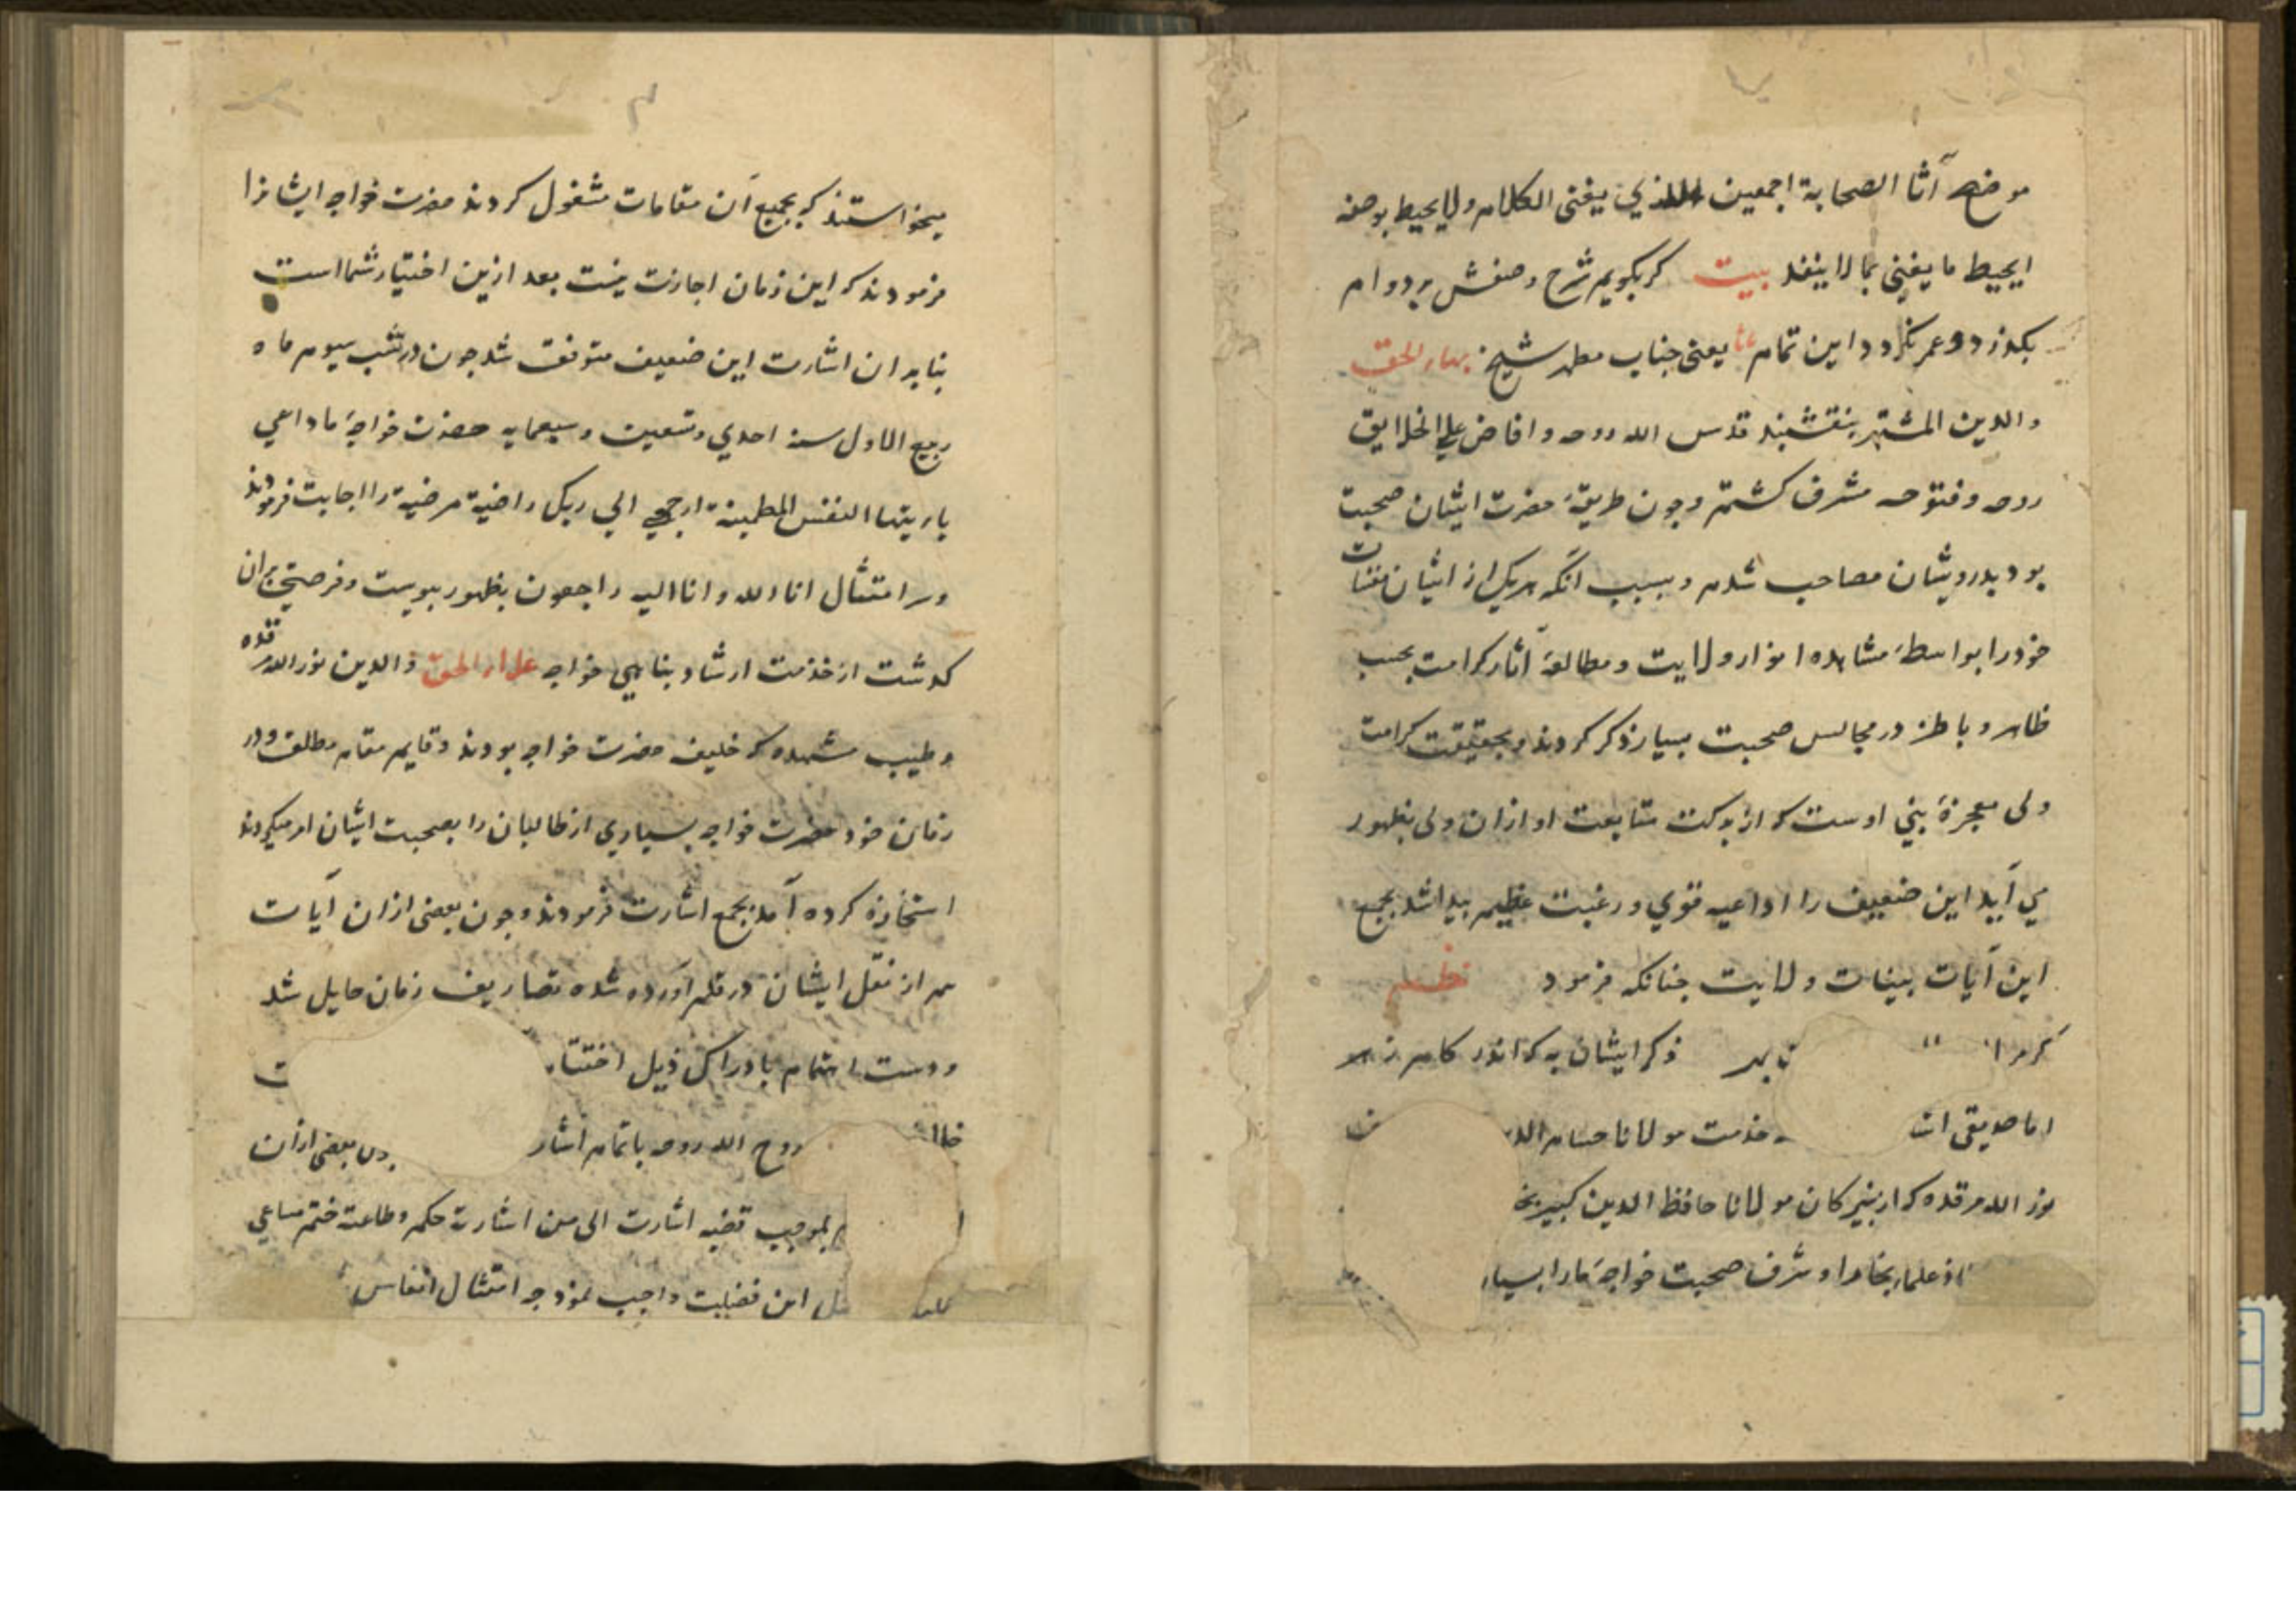 موضح آثا الصحابة اجمعین الذي یفنی الکلام ولا یحیط بوصفه
ایحیط ما یفنی بما لا ینفد بیت کر بکویم شرح وصفش بر دوام
بکذرد و عمر نکردد این تمام یعنی جناب مطهر شیخ بهاء الحق
والدین المشتهر بنقشبند قدس الله روحه وافاض علی الخلایق
روحه وفتوحه مشرف کشتم وچون طریقهٔ حضرت ایشان صحبت
بود بدرویشان مصاحب شدم وبسبب آنکه هریک از ایشان
خود را بواسطهٔ مشاهده انوار ولایت ومطالعهٔ آثار کرامت بحسب
ظاهر وباطن در مجالس صحبت بسیار ذکر کردند وبحقیقت کرامت
ولی معجزهٔ نبی اوست که از برکت متابعت او ازان ولی بظهور
می آید این ضعیف را داعیه قوي ورغبت عظیم پیدا شد بجمع
این آیات بینات ولایت چنانکه فرمود نظم
ذکر ایشان به که اندر
اما صدیقی خدمت مولانا حسام
نور الله مرقده که از نبیرکان مولانا حافظ الدین کبیر
از علماء بخارا وشرف صحبت خواجهٔ ما را بسیار
میخواستند که بجمیع آن مقامات مشغول کردند حضرت خواجه ایشانرا
فرمودند که این زمان اجازت نیست بعد ازین اختیار شما است
بنابران اشارت این ضعیف متوقف شد چون در شب سیوم ماه
ربیع الاول سنة احدي وتسعین وسبعمایه حضرت خواجهٔ ما داعي
یا ایتها النفس المطمینة ارجعي الی ربک راضیة مرضیة را اجابت فرمودند
وسر امتثال انا لله وانا الیه راجعون بظهور پیوست وفرصتی بران
کذشت از خدمت ارشاد پناهي خواجه علاء الحق والدین نور الله مرقده
وطیب مشهده که خلیفه حضرت خواجه بودند وقایم مقام مطلق ودر
زمان خود حضرت خواجه بسیاري از طالبان را بصحبت ایشان امر میکردند
استخازه کرده آمد بجمع اشارت فرمودند وچون بعضی ازان آیات
هم از نقل ایشان در قلم آورده شده تصاریف زمان حایل شد
ودست اهتمام بادراک ذیل
روح الله روحه باتمام اشار بعضی ازان
بموجب قضیه اشارت الی من اشارته حکم وطاعته ختم مساعي
این فضیلت واجب نمود چه امتثال انفاس